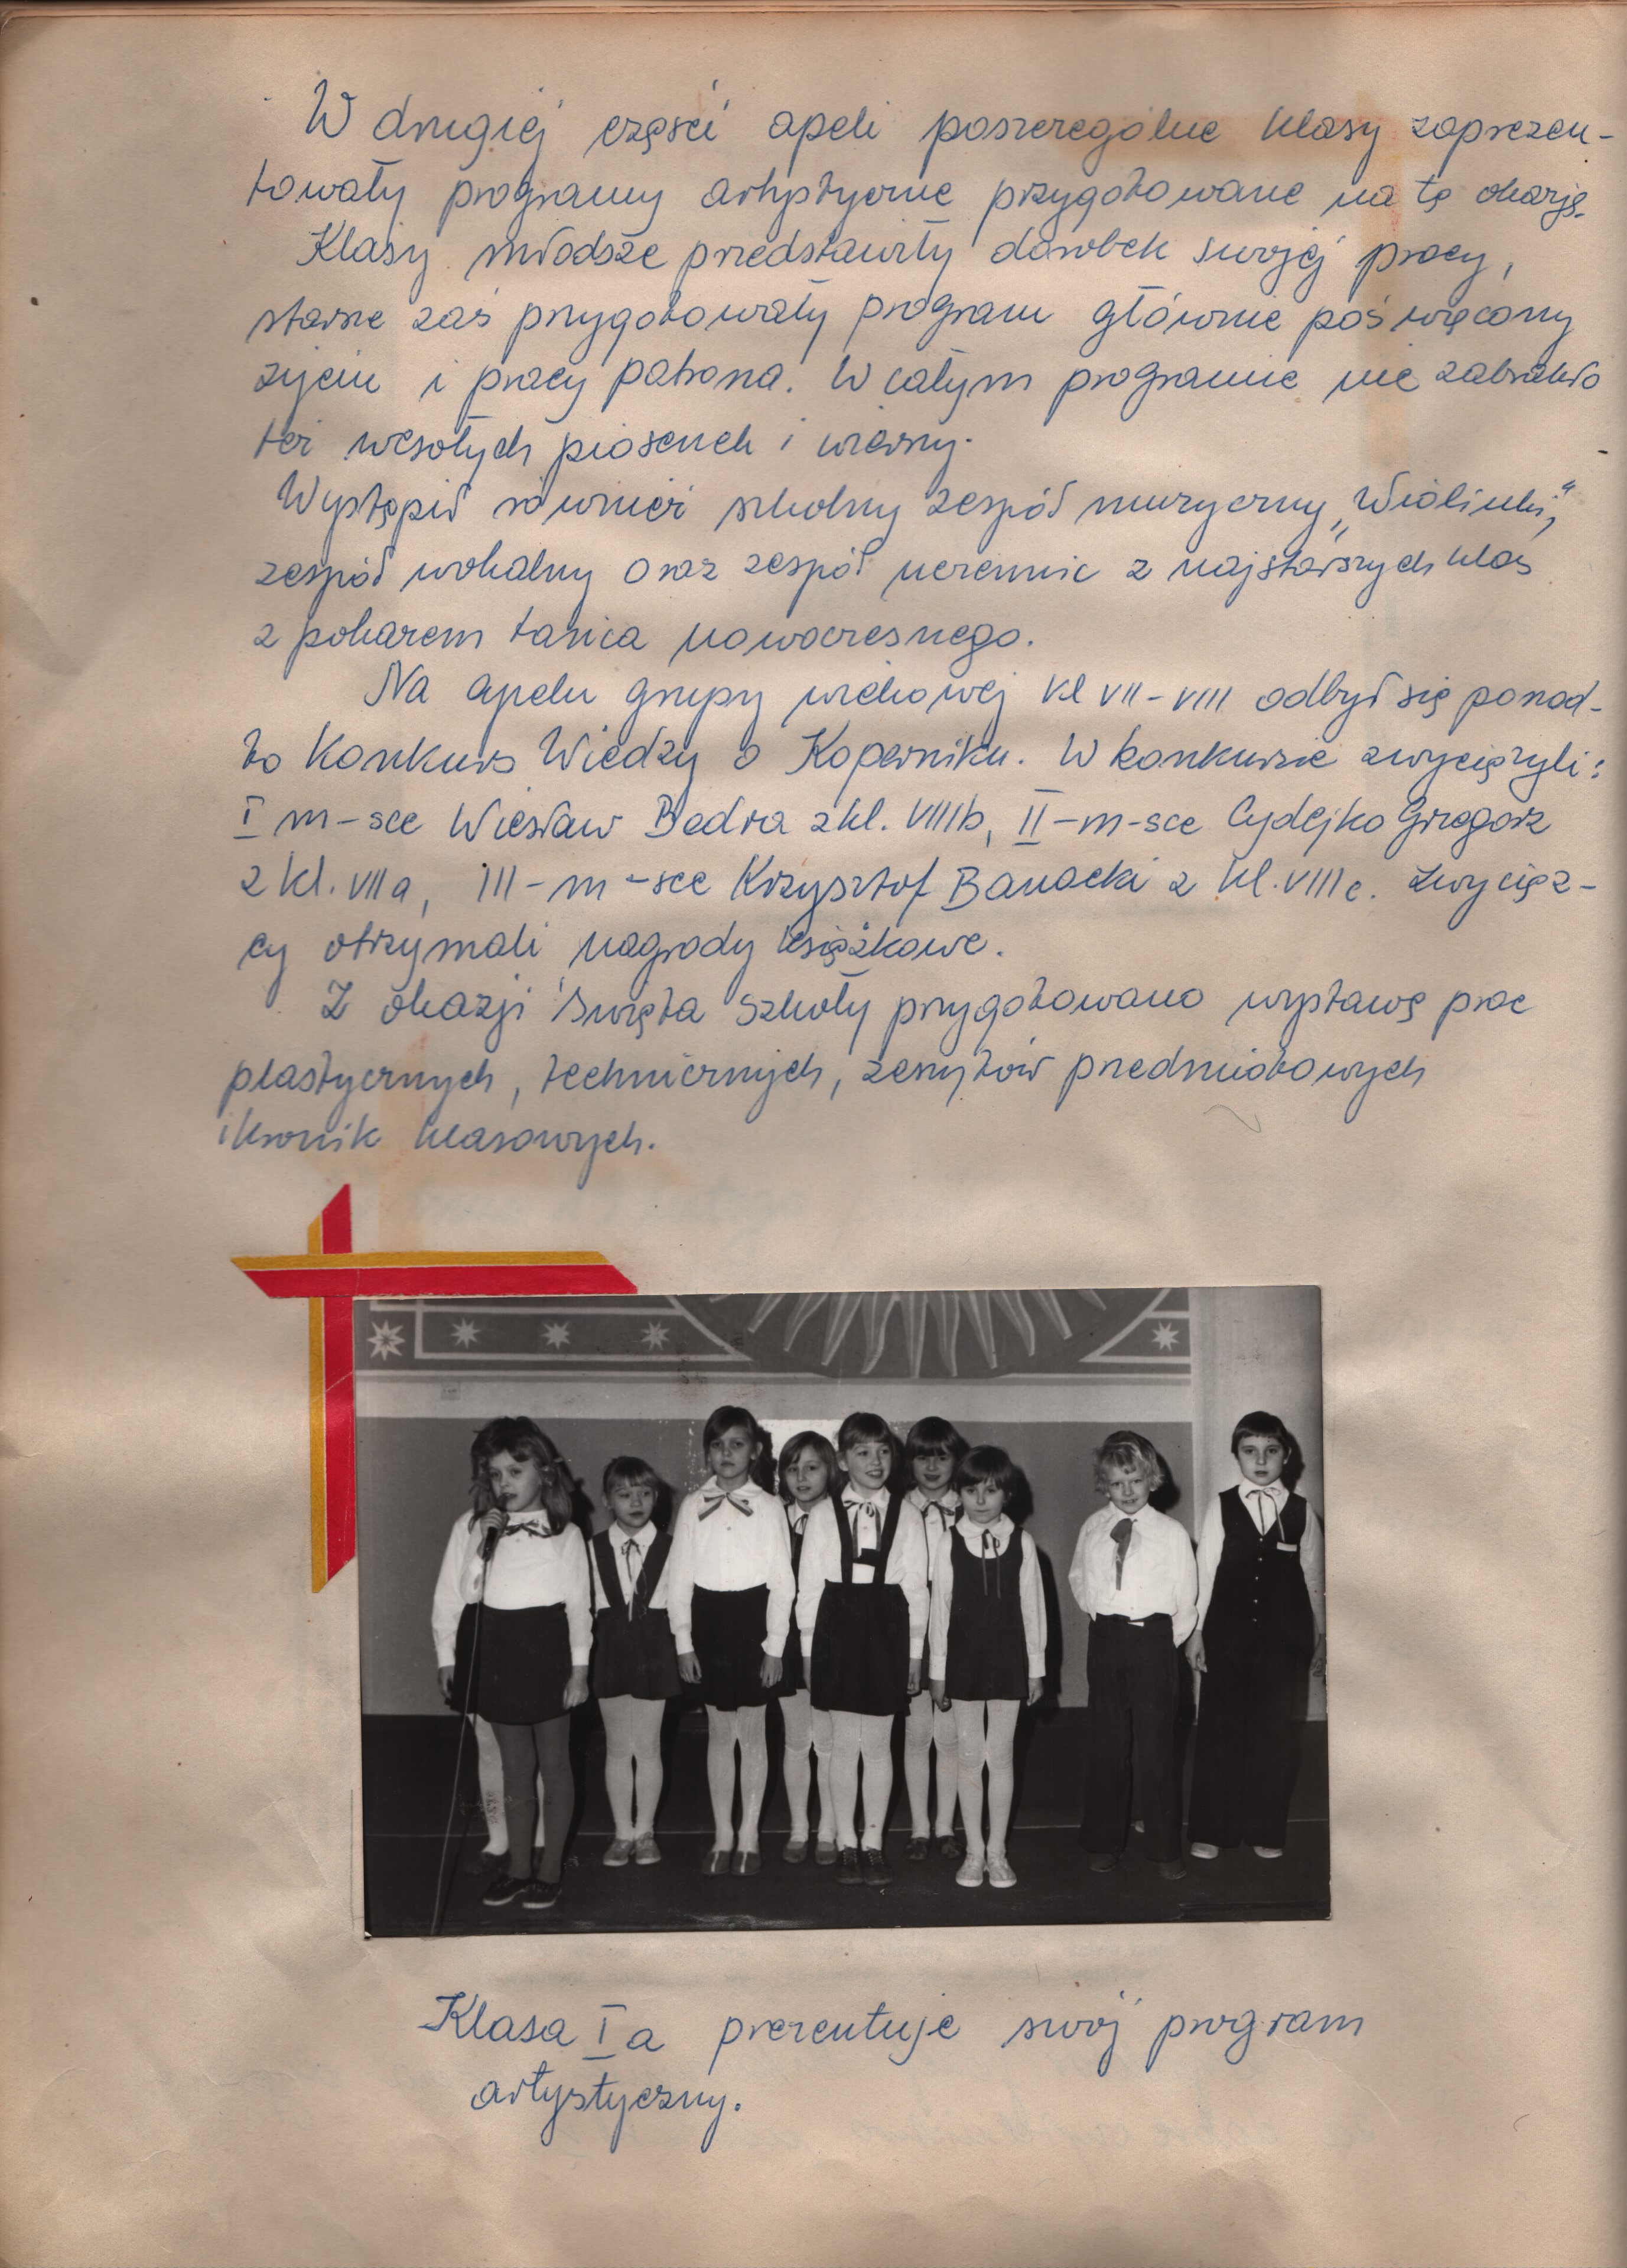 W drugiej części apeli poszczególne klasy zaprezen-
towały programy artystyczne przygotowane na tę okazję.
Klasy młodsze przedstawiły dorobek swojej pracy,
starsze zaś przygotowały program głównie poświęcony
życiu i pracy patrona. W całym programie nie zabrakło
też wesołych piosenek i wierszy.
Wystąpił również szkolny zespół muzyczny „Wiolinki",
zespół wokalny oraz zespół uczennic z najstarszych klas
z pokazem tańca nowoczesnego.
Na apelu grupy wiekowej kl VII-VIII odbył się ponad-
to Konkurs Wiedzy o Koperniku. W konkursie zwyciężyli:
I m-sce Wiesław Bedra z kl. VIIIb, II-m-sce Cydejko Grzegorz
z kl. VIIa, III-m-sce Krzysztof Banacki z kl. VIIIc. Zwycięz-
cy otrzymali nagrody książkowe.
Z okazji Święta Szkoły przygotowano wystawę prac
plastycznych, technicznych, zeszytów przedmiotowych
i kronik klasowych.
Klasa I a prezentuje swój program
artystyczny.